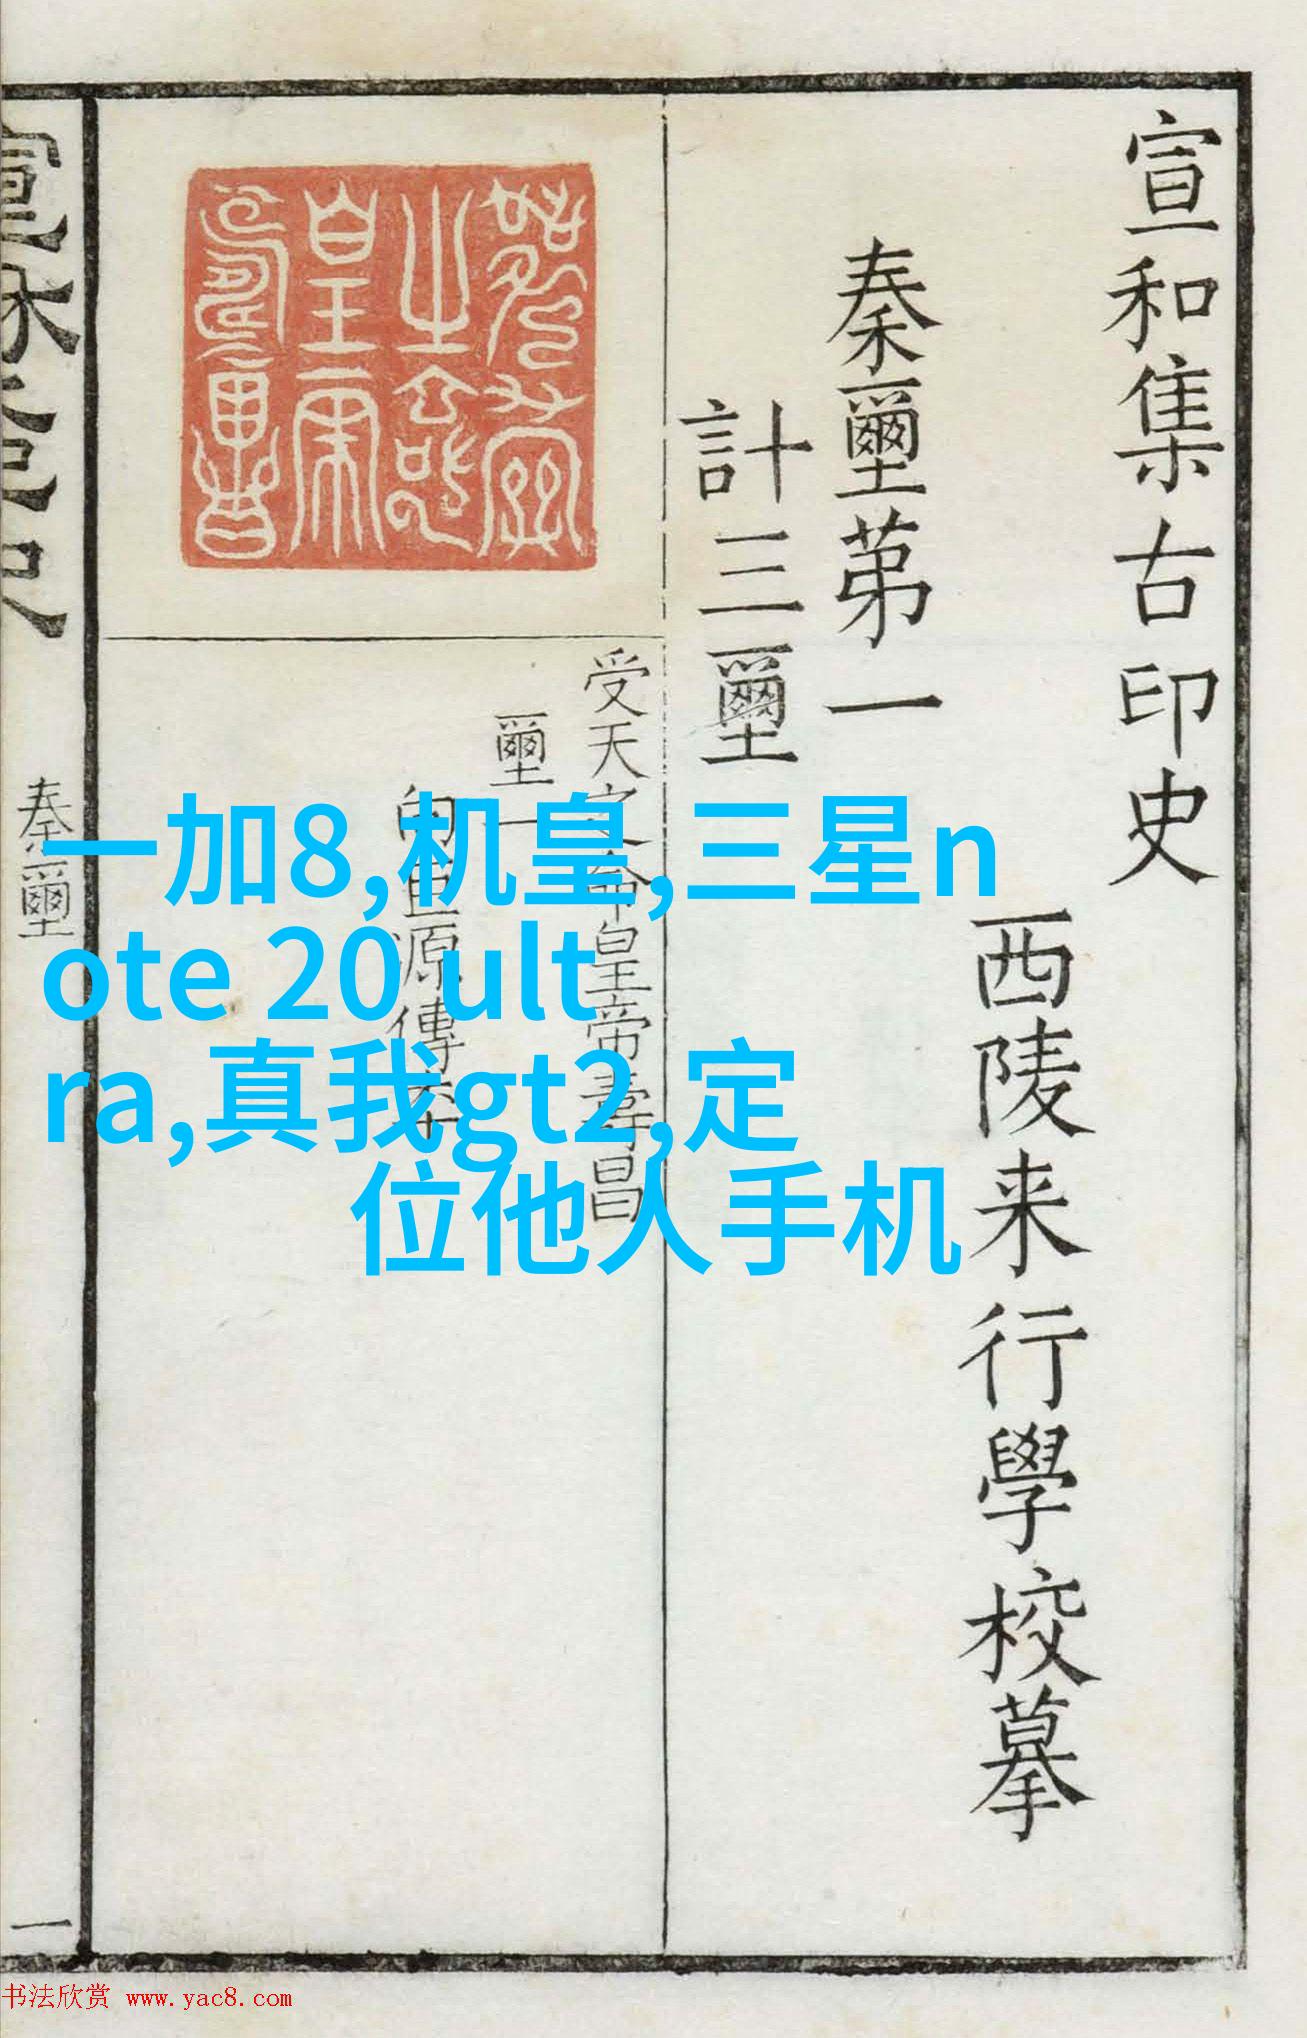 宣和集古印史
西陵来行學校摹
秦璽第一
計三璽
受天之命皇帝壽昌
璽一
向巨源傳本
秦璽
一
一加8,机皇,三星n
ote 20 ult
ra,真我gt2,定
位他人手机
书法欣赏 www.yac8.com